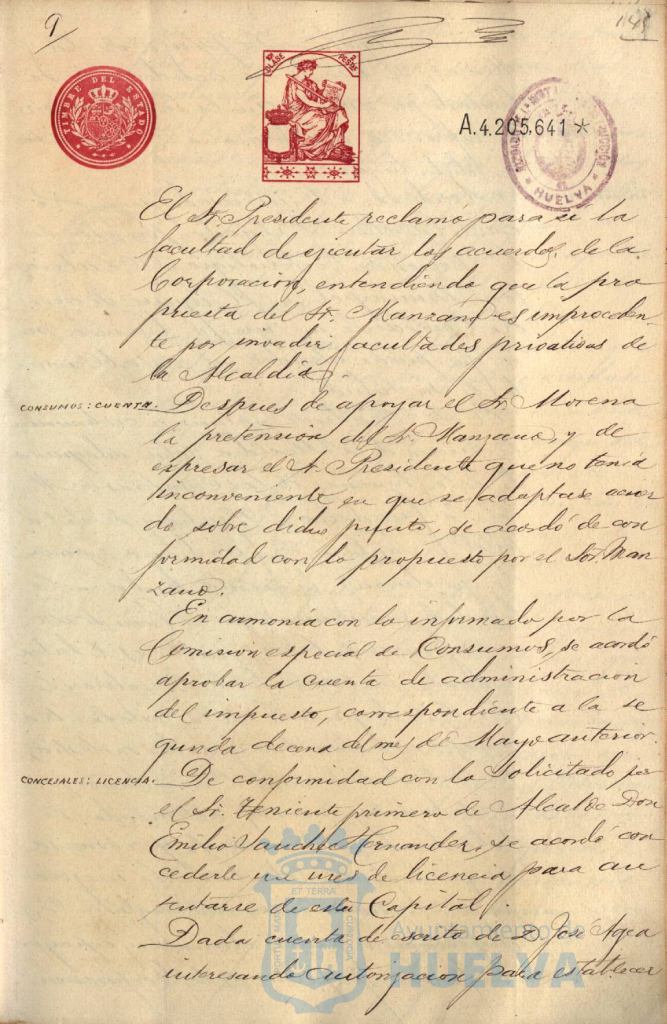 9
145
TIMBRE DEL ESTADO
10ª CLASE
2 PESETAS
A.4.205,641 *
HUELVA
El Sr. Presidente reclamó para si la
facultad de ejecutar los acuerdos de la
Corporación, entendiendo que la pro
puesta del Sr. Manzano es improceden
te por invadir facultades privativas de
la Alcaldía.
CONSUMOS: CUENTA. Despues de apoyar el Sr. Morena
la pretensión del Sr. Manzano, y de
expresar el Sr. Presidente que no tenía
inconveniente en que se adoptase acuer
do sobre dicho punto, se acordó de con
formidad con lo propuesto por el Sor. Man
zano.
En armonía con lo informado por la
Comision especial de Consumos, se acordó
aprobar la cuenta de administración
del impuesto, correspondiente a la se
gunda decena del mes de Mayo anterior.
CONCEJALES: LICENCIA. De conformidad con lo solicitado por
el Sr. Teniente primero de Alcalde Don
Emilio Sanchez Hernandez, se acordó con
cederle un mes de licencia para au
sentarse de esta Capital.
Dada cuenta de escrito de D. José Agea
interesando autorizacion para establecer
Ayuntamiento de
HUELVA